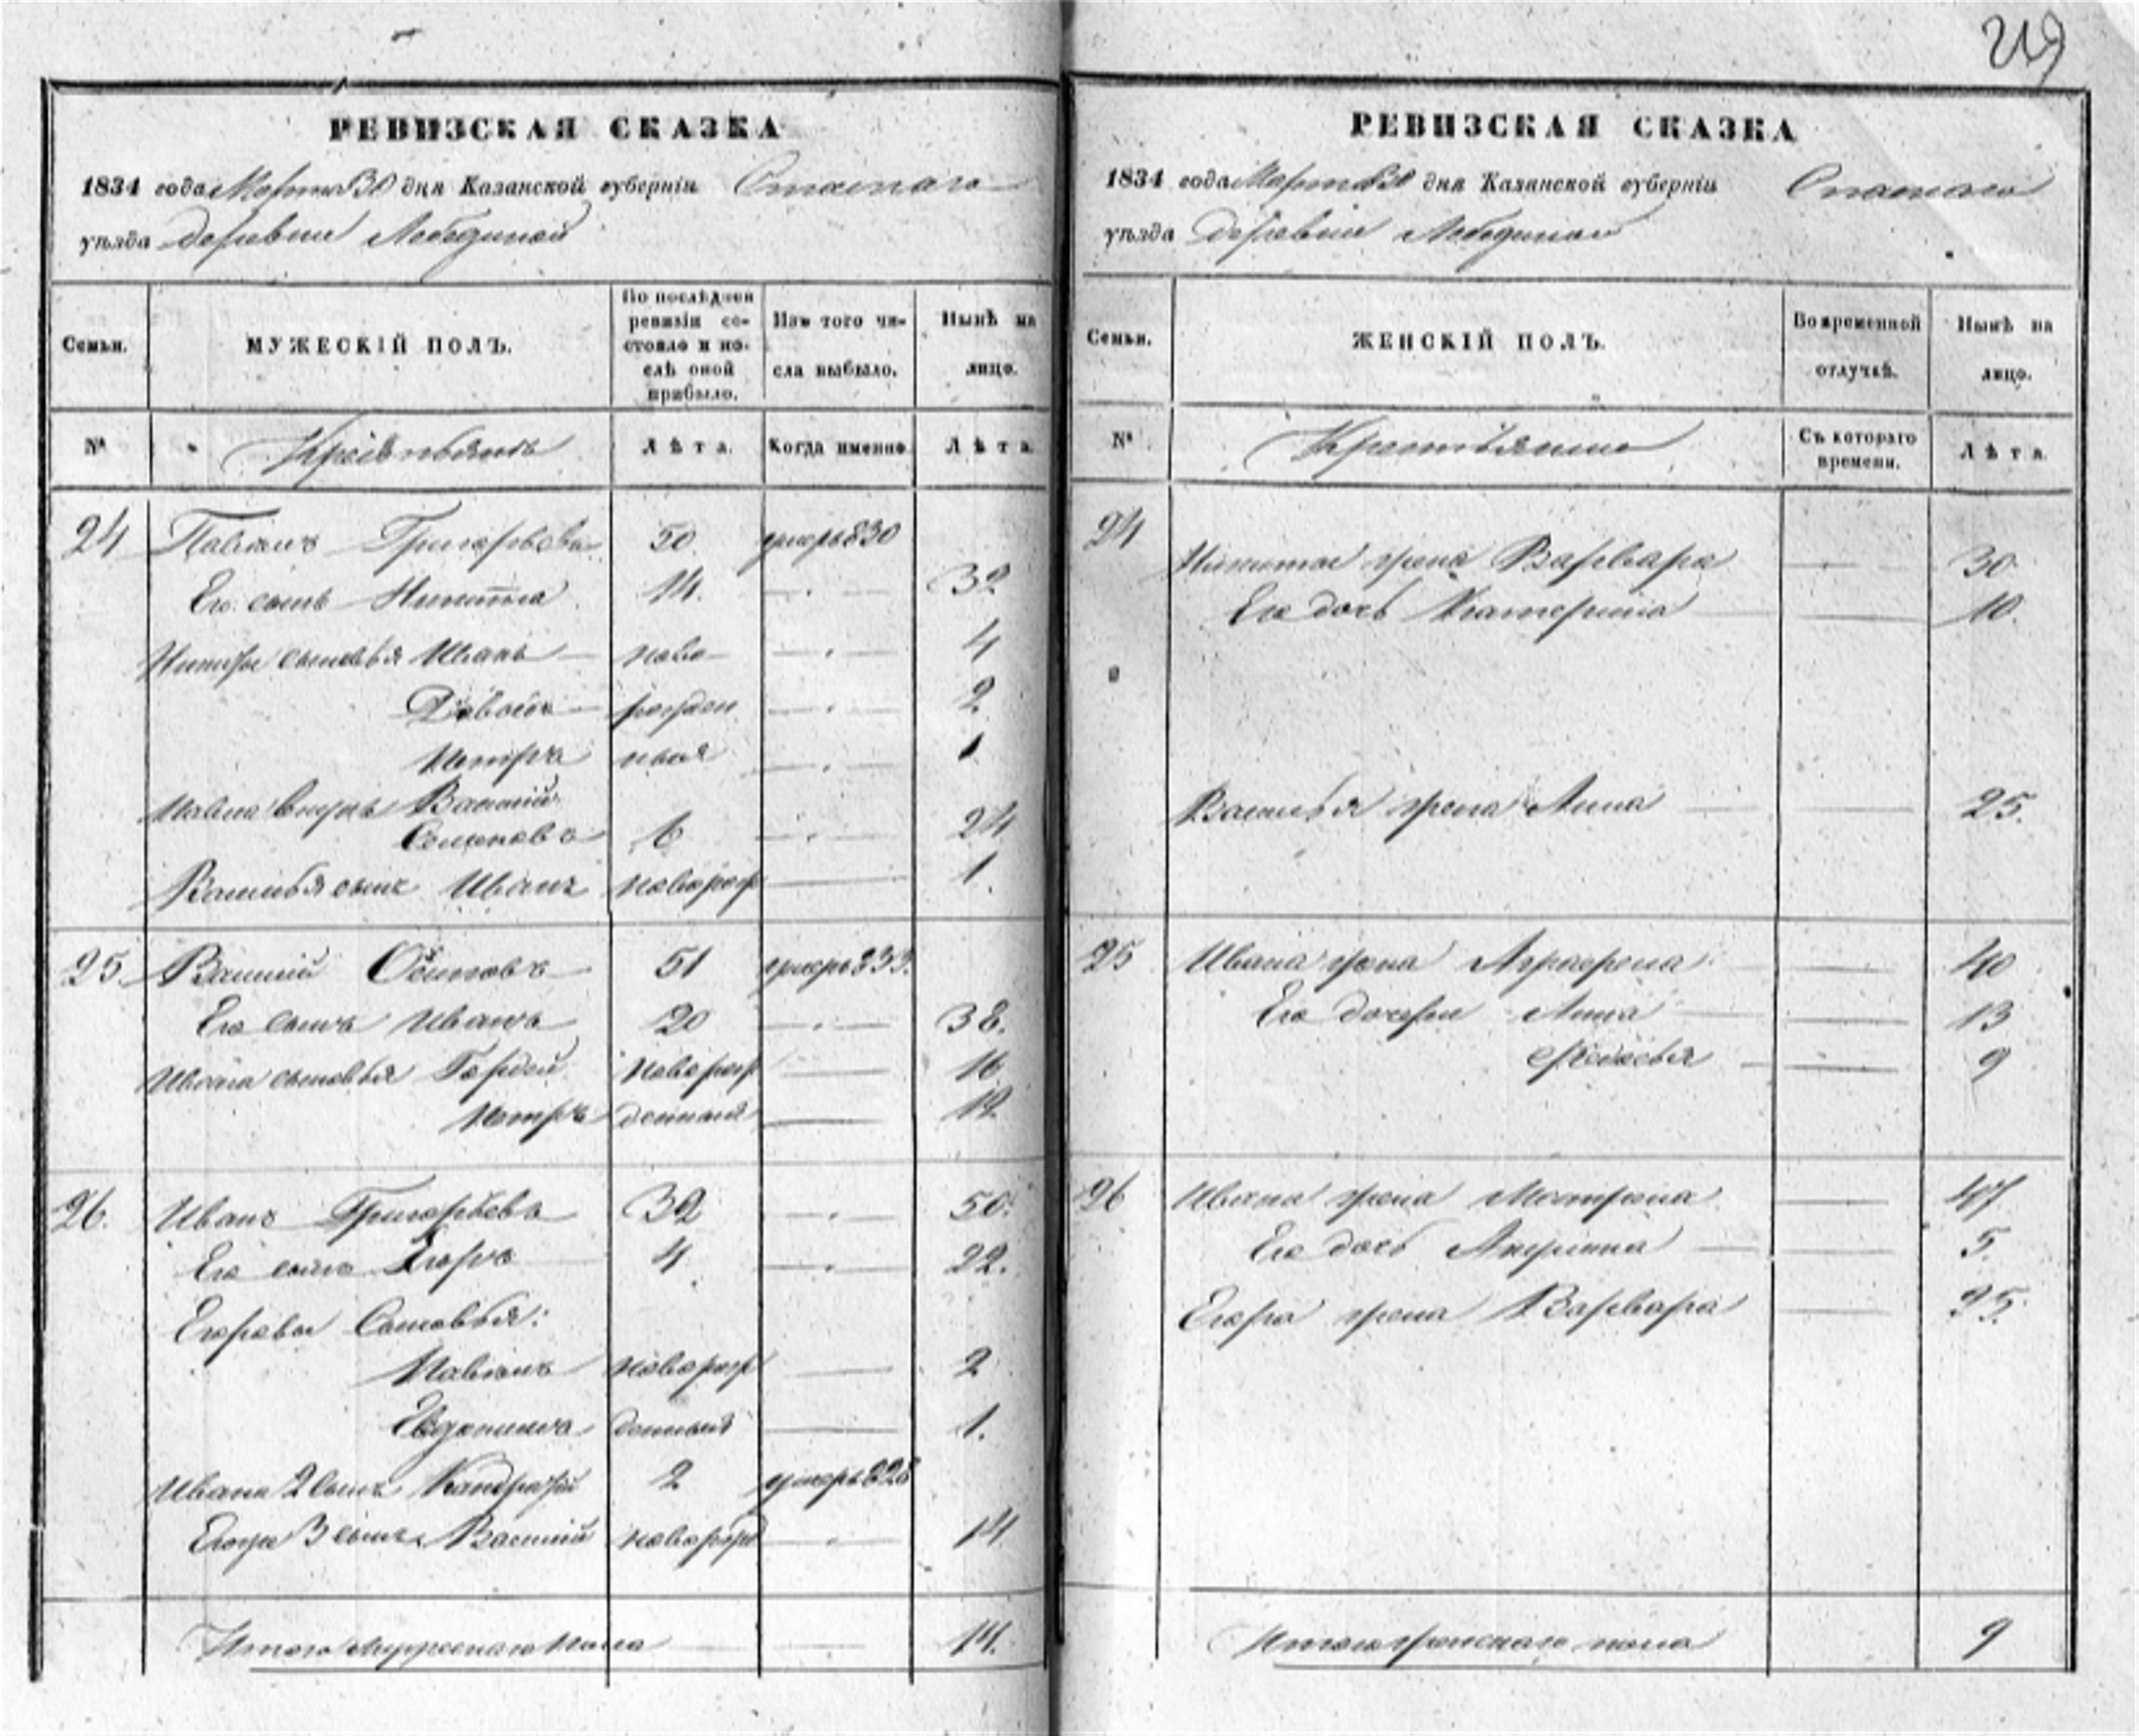 219
РЕВИЗСКАЯ СКАЗКА
1834 года Марта 30 дня Казанской губерніи Спаскаго
уѣзда деревни Лебединой
Семьи.
МУЖЕСКІЙ ПОЛЪ.
По послѣдней
ревизіи со-
стояло и по-
слѣ оной
прибыло.
Изъ того чи-
сла выбыло.
Нынѣ на
лицо.
№
Крестьянъ
Лѣта.
Когда именно.
Лѣта.
24 Павелъ Григорьевъ 50 умеръ 830
Его сынъ Никита 14. 32
Никиты сыновья Иванъ ново 4
рожден 2
Петръ ныя 1
Павла внукъ Василій
Семеновъ 6 24
Васильья сынъ Иванъ новорож 1.
25. Василій Осиповъ 51 умеръ 833.
Его сынъ Иванъ 20 38.
Ивана сыновья Гордей новорож 16
Петръ денныя 12
26. Иванъ Григорьевъ 32 50.
Его сынъ Егоръ 4 22.
Егоровы Сыновья:
Павелъ новорож 2
Евдокимъ денныя 1.
Ивана 2 сынъ Кандратій 2 умеръ 828
3 сынъ Василій новорож 14
Итого мужескаго пола 14.
РЕВИЗСКАЯ СКАЗКА
1834 года Марта 30 дня Казанской губерніи Спаскаго
уѣзда деревни Лебединой
Семьи.
ЖЕНСКІЙ ПОЛЪ.
Во временной
отлучкѣ.
Нынѣ на
лицо.
№
Съ котораго
времени.
Лѣта.
24
Никиты жена Варвара 30
Его дочь Катерина 10.
Васильья жена Анна 25.
25 Ивана жена Аграфена 40
Его дочери Анна 13
9
26 Ивана жена Матрена 47
Его дочь Акулина 5.
Егора жена Варвара 25.
Итого женскаго пола 9